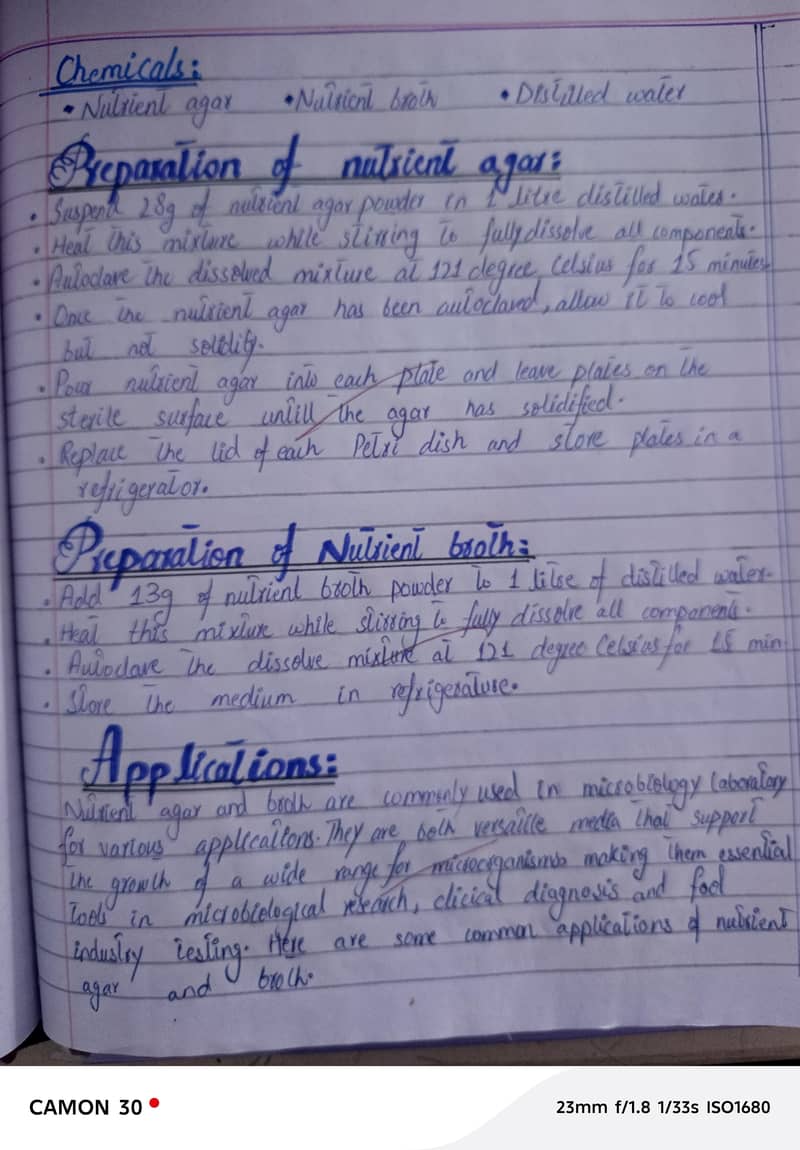 Chemicals:
• Nutrient agar • Nutrient broth • Distilled water
Preparation of nutrient agar:
• Suspend 28g of nutrient agar powder in 1 litre distilled water.
• Heat this mixture while stirring to fully dissolve all components.
• Autoclave the dissolved mixture at 121 degree Celsius for 15 minutes
• Once the nutrient agar has been autoclaved, allow it to cool
but not solidify.
• Pour nutrient agar into each plate and leave plates on the
sterile surface untill the agar has solidified.
• Replace the lid of each Petri dish and store plates in a
refrigerator.
Preparation of Nutrient broth:
• Add 13g of nutrient broth powder to 1 litre of distilled water.
• Heat this mixture while stirring to fully dissolve all components.
• Autoclave the dissolve mixture at 121 degree Celsius for 15 min
• Store the medium in refrigerature.
Applications:
Nutrient agar and broth are commonly used in microbiology laboratory
for various applications. They are both versatile media that support
the growth of a wide range for microorganisms making them essential
tools in microbiological research, clicical diagnosis and food
industry testing. Here are some common applications of nutrient
agar and broth.
CAMON 30
23mm f/1.8 1/33s ISO1680